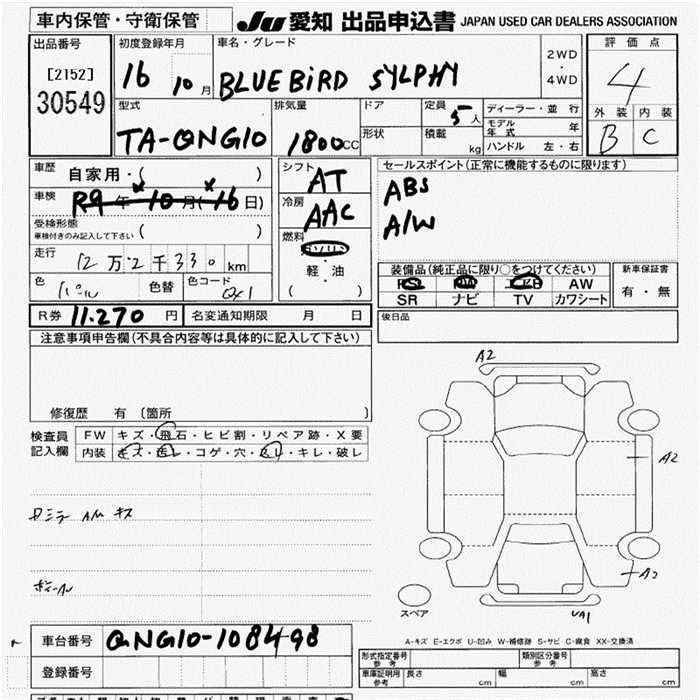 車内保管・守衛保管
JU 愛知 出品申込書 JAPAN USED CAR DEALERS ASSOCIATION
出品番号
[2152]
30549
初度登録年月
16 10月
車名・グレード
BLUEBIRD SYLPHY
2WD
・
4WD
評価点
4
外装 内装
B C
型式
TA-QNG10
排気量
1800cc
ドア
形状
定員
5人
積載
kg
ディーラー・並行
モデル年式 年
ハンドル 左・右
車歴
自家用・( )
車検
R9年10月(16日)
受検形態
車検付きのみ記入して下さい ( )
走行
12万2千330km
色
色替
色コード
シフト
AT
冷房
AAC
燃料
ガソリン
軽・油
( )
セールスポイント(正常に機能するものに限ります)
ABS
A/W
装備品(純正品に限り○をつけてください)
PS PW エアB AW
SR ナビ TV カワシート
新車保証書
有・無
R券 11.270円 名変通知期限 月 日
後日品
注意事項申告欄(不具合内容等は具体的に記入して下さい)
修復歴 有 (箇所 )
検査員
記入欄
FW キズ・飛石・ヒビ割・リペア跡・X要
内装 キズ・汚レ・コゲ・穴・スレ・キレ・破レ
A2
A2
A2
UA1
スペア
A-キズ E-エクボ U-凹み W-補修跡 S-サビ C-腐食 XX-交換済
車台番号 QNG10-108498
登録番号
形式指定番号
参考
類別区分番号
参考
車庫証明用
参考
長さ cm 幅 cm 高さ cm